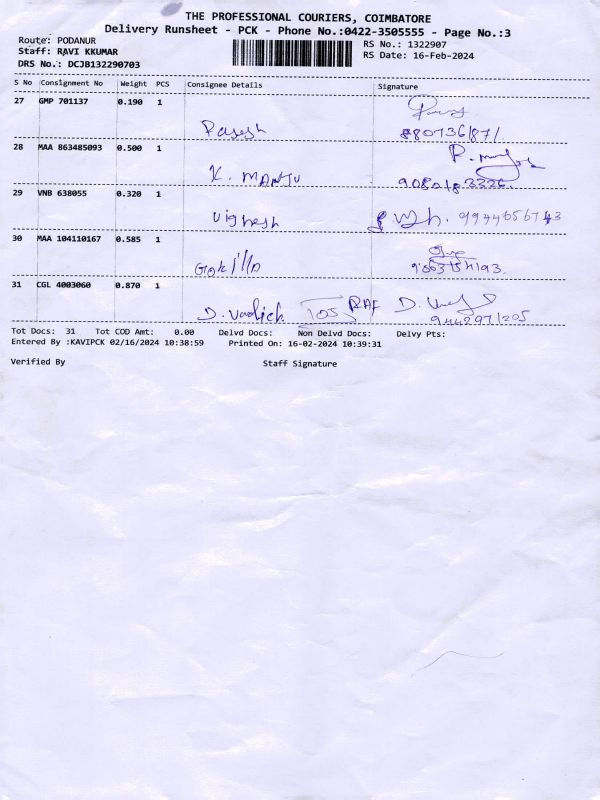 THE PROFESSIONAL COURIERS, COIMBATORE
Delivery Runsheet - PCK - Phone No.:0422-3505555 - Page No.:3
Route: PODANUR
RS No.: 1322907
Staff: RAVI KKUMAR
RS Date: 16-Feb-2024
DRS No.: DCJB132290703
S No Consignment No Weight PCS Consignee Details Signature
27 GMP 701137 0.190 1
28 MAA 863485093 0.500 1
K. MANJU
29 VNB 638055 0.320 1
Vighesh 9944656743
30 MAA 104110167 0.585 1
31 CGL 4003060 0.870 1
Tot Docs: 31 Tot COD Amt: 0.00 Delvd Docs: Non Delvd Docs: Delvy Pts:
Entered By :KAVIPCK 02/16/2024 10:38:59 Printed On: 16-02-2024 10:39:31
Verified By Staff Signature